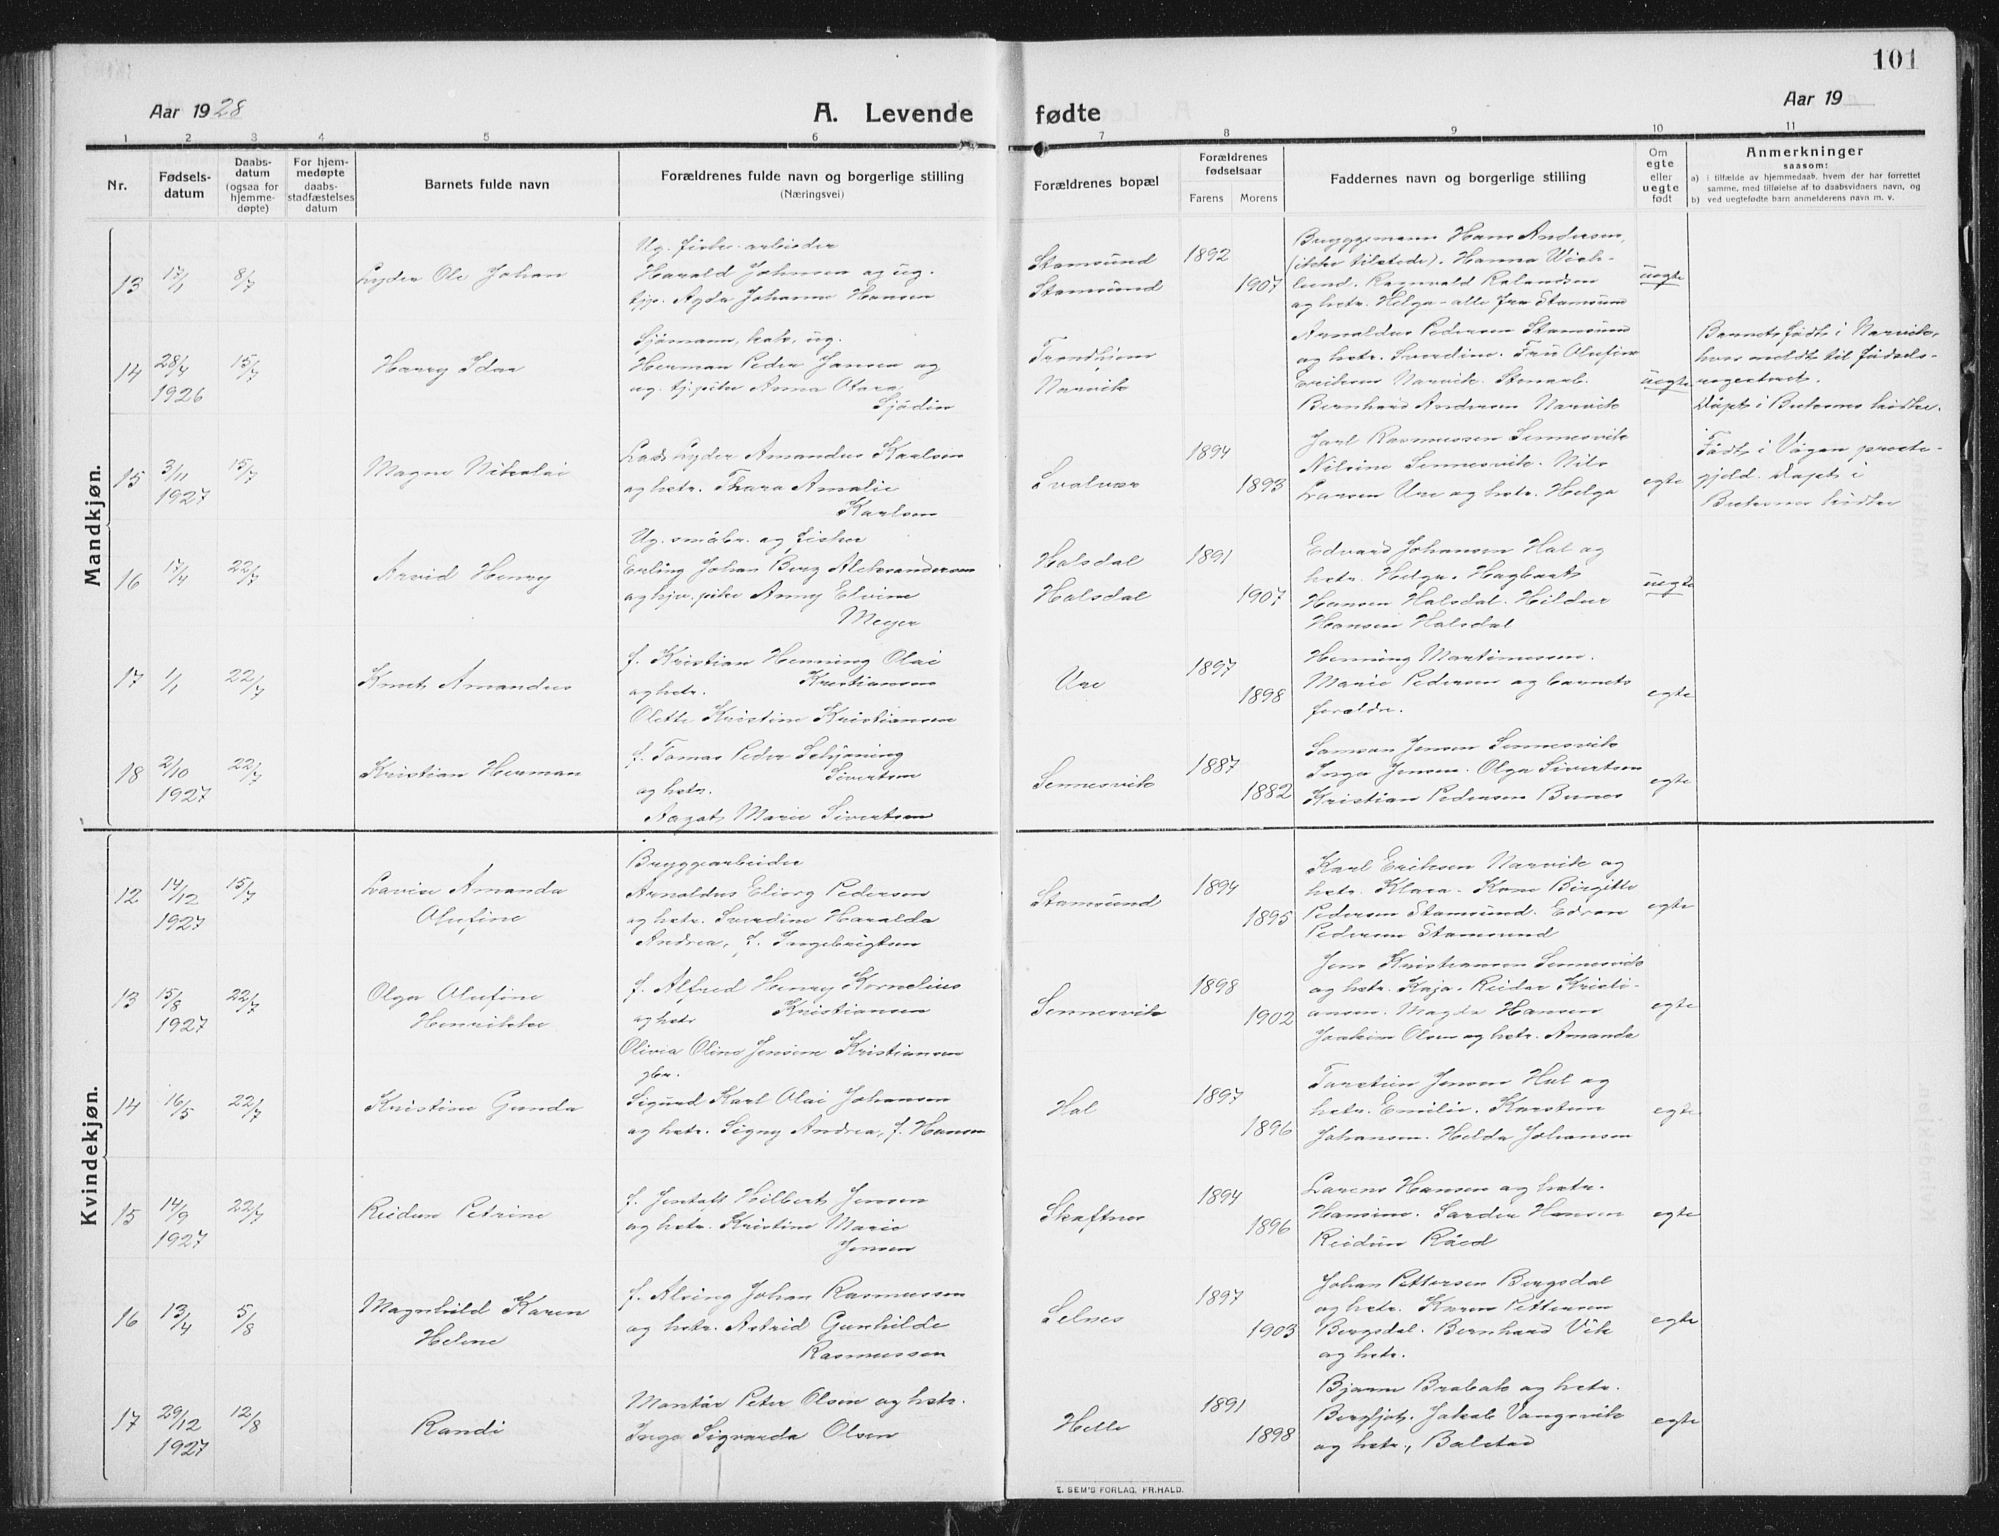 101
Aar 1928
A. Levende fødte
Aar 19
1 2 3 4 5 6 7 8 9 10 11
Nr.
Fødsels-
datum
Daabs-
datum
(ogsaa for
hjemme-
døpte)
For hjem-
medøpte
daabs-
stadfæstelses
datum
Barnets fulde navn
Forældrenes fulde navn og borgerlige stilling
(Næringsvei)
Forældrenes bopæl
Forældrenes
fødselsaar
Farens Morens
Faddernes navn og borgerlige stilling
Om
egte
eller
uegte
født
Anmerkninger
saasom:
a) i tilfælde av hjemmedaab, hvem der har forrettet
samme, med tilføielse af to daabsvidners navn, og
b) ved uegtefødte barn anmelderens navn m. v.
Mandkjøn.
13 17/1 8/7
Lyder Ole Johan
Ug. fisker arbeider
Harald Johnsen og ug.
tjp. Agda Johanne Hansen
Stamsund
Stamsund
1892
1907
Bryggemann Hans Andersen,
(ikke tilstede). Hanna Wick-
lund. Ragnvald Rolandsen
og hstr. Helga - alle fra Stamsund
uegte
14 28/4 15/7
1926
Harry Idar
Sjømann, ug.
Herman Peder Jansen og
ug. tj.pike Anna Otara
Sjødin
Trondhjem
Narvik
Arnoldus Pedersen Stamsund
og hstr. Sverdine. Fru Olufine
Eriksen Narvik.
Bernhard Andersen Narvik
uegte
Barnet født i Narvik,
hvor meldt til fødsels-
registret.
Døpt i Buksnes kirke.
15 3/11 15/7
1927
Magne Nikolai
Lyder Amandus Karlsen
og hstr. Thora Amalie
Karlsen
Svolvær
1894
1893
Jarl Rasmussen Sennesvik
Nilsine Sennesvik. Nils
Larsen Ure og hstr. Helga
egte
Født i Vågan preste-
gjeld. Døpt i
Buksnes kirke
16 17/4 22/7
Arvid Henry
Ug. småbr. og fisker
Erling Johan Berg Aleksandersen
og hjv. pike Anny Elvine
Meyer
Halsdal
Halsdal
1891
1907
Edvard Johansen Hal og
hstr. Helga. Hagbart
Hansen Halsdal. Hildur
Hansen Halsdal
uegte
17 1/1 22/7
Knut Amandus
f. Kristian Henning Olai
Kristiansen
og hstr.
Olette Kristine Kristiansen
Ure
1897
1898
Henning Martinussen.
Marie Pedersen og barnets
foreldre.
egte
18 2/10 22/7
1927
Kristian Herman
f. Tomas Peder Schjøning
Sivertsen
og hstr.
Aagot Marie Sivertsen
Sennesvik
1887
1882
Samson Jensen Sennesvik
Inga Jensen. Olga Sivertsen
Kristian Pedersen Bunes
egte
Kvindekjøn.
12 14/12 15/7
1927
Lovise Amanda
Olufine
Bryggearbeider
Arnoldus Eliorg Pedersen
og hstr. Sverdine Haralda
Andrea, f. Ingebrigtsen
Stamsund
1894
1895
Karl Eriksen Narvik og
hstr. Klara. Kone Birgitte
Pedersen Stamsund. Edvon
Pedersen Stamsund
egte
13 15/8 22/7
1927
Olga Olufine
Henrikke
f. Alfred Henry Kornelius
Kristiansen
og hstr
Olivia Oline Jensine Kristiansen
Sennesvik
1898
1902
Jens Kristiansen Sennesvik
og hstr. Kaja. Reidar Kristi-
ansen. Magda Hansen
Joakim Olsen og hstr. Amanda
egte
14 16/5 22/7
Kristine Gunda
gbr.
Sigurd Karl Olai Johansen
og hstr. Signy Andrea, f. Hansen
Hal
1897
1896
Torstein Jensen Hal og
hstr. Emilie. Karsten
Johansen. Helda Johansen
egte
15 14/9 22/7
1927
Reidun Petrine
f. Jentoft Hilbert Jensen
og hstr. Kristine Marie
Jensen
Skaftnes
1894
1896
Lorens Hansen og hstr.
Hansine. Hansen
Reidun
egte
16 13/4 5/8
Magnhild Karen
Helene
f. Alving Johan Rasmussen
og hstr. Astrid Gunhilde
Rasmussen
Selnes
1897
1903
Johan Pettersen Bergsdal
og hstr. Karen Pettersen
Bergsdal. Bernhard Vik
og hstr.
egte
17 29/12 12/8
1927
Randi
Montør Peter Olsen og hstr.
Inga Sigvarda Olsen
Helle
1891
1898
Bjarne Brobak og hstr.
Bergljot. Jakob Vangsvik
og hstr., Balstad
egte
E. SEM'S FORLAG, FR.HALD.